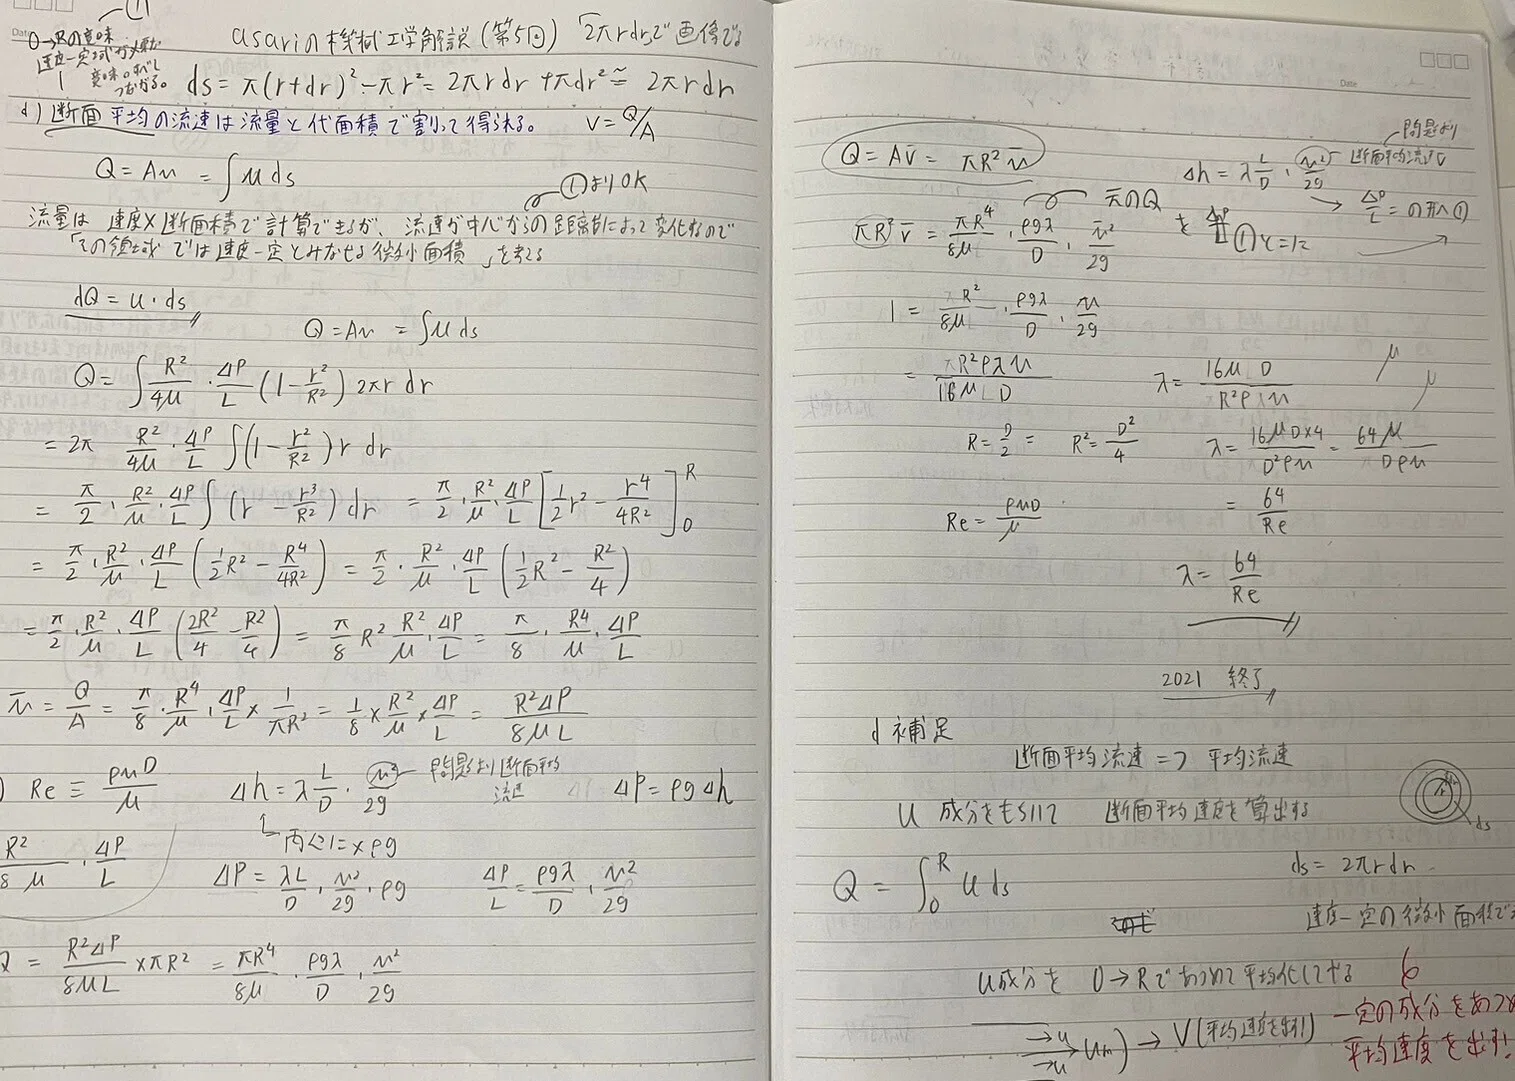 asariの機械工学解説(第5回) 「2πrdr」で画像でる
①
0→Rの意味
速度一定
ds = π(r+dr)² - πr² = 2πrdr + πdr² ≃ 2πrdr
d) 断面平均の流速は流量と代面積で割って得られる。 V = Q/A
Q = Au = ∫u ds
①よりOK
流量は 速度×断面積で計算できるが、流速が中心からの距離rによって変化するので
「その領域では速度一定とみなせる微小面積」を考える
dQ = u・ds
Q = Au = ∫u ds
Q = ∫ R²/4μ・ΔP/L (1 - r²/R²) 2πr dr
= 2π R²/4μ・ΔP/L ∫(1 - r²/R²) r dr
= π/2・R²/μ・ΔP/L ∫(r - r³/R²) dr = π/2・R²/μ・ΔP/L [1/2 r² - r⁴/4R²]₀ᴿ
= π/2・R²/μ・ΔP/L (1/2 R² - R⁴/4R²) = π/2・R²/μ・ΔP/L (1/2 R² - R²/4)
= π/2・R²/μ・ΔP/L (2R²/4 - R²/4) = π/8 R² R²/μ・ΔP/L = π/8・R⁴/μ・ΔP/L
ū = Q/A = π/8・R⁴/μ・ΔP/L × 1/πR² = 1/8 × R²/μ × ΔP/L = R²ΔP/8μL
) Re ≡ ρuD/μ Δh = λ L/D・u²/2g 問題より断面平均流速 ΔP = ρgΔh
両辺に×ρg
R²/8μ・ΔP/L ΔP = λL/D・u²/2g・ρg ΔP/L = ρgλ/D・u²/2g
Q = R²ΔP/8μL × πR² = πR⁴/8μ・ρgλ/D・u²/2g
Date
Q = Av̄ = πR²ū
Δh = λ L/D・u²/2g 問題より断面平均流速
→ ΔP/L = の形へ①
πR²v̄ = πR⁴/8μ・ρgλ/D・u²/2g
1 = R²/8μ・ρgλ/D・u/2g
= πR²ρλu/16μD λ = 16μD/R²ρu
μ
μ
R = D/2 = R² = D²/4 λ = 16μD×4/D²ρu = 64μ/Dρu
Re = ρuD/μ = 64/Re
λ = 64/Re
2021 終了
d 補足
断面平均流速 => 平均流速
u 成分をもちいて 断面平均速度を算出する
ds
Q = ∫₀ᴿ u ds
ds = 2πrdr
速度一定の微小面積で
u成分を 0→Rであつめて平均化してやる
→u
→u
um → V(平均速度を出す)
一定の成分をあつめ
平均速度を出す!